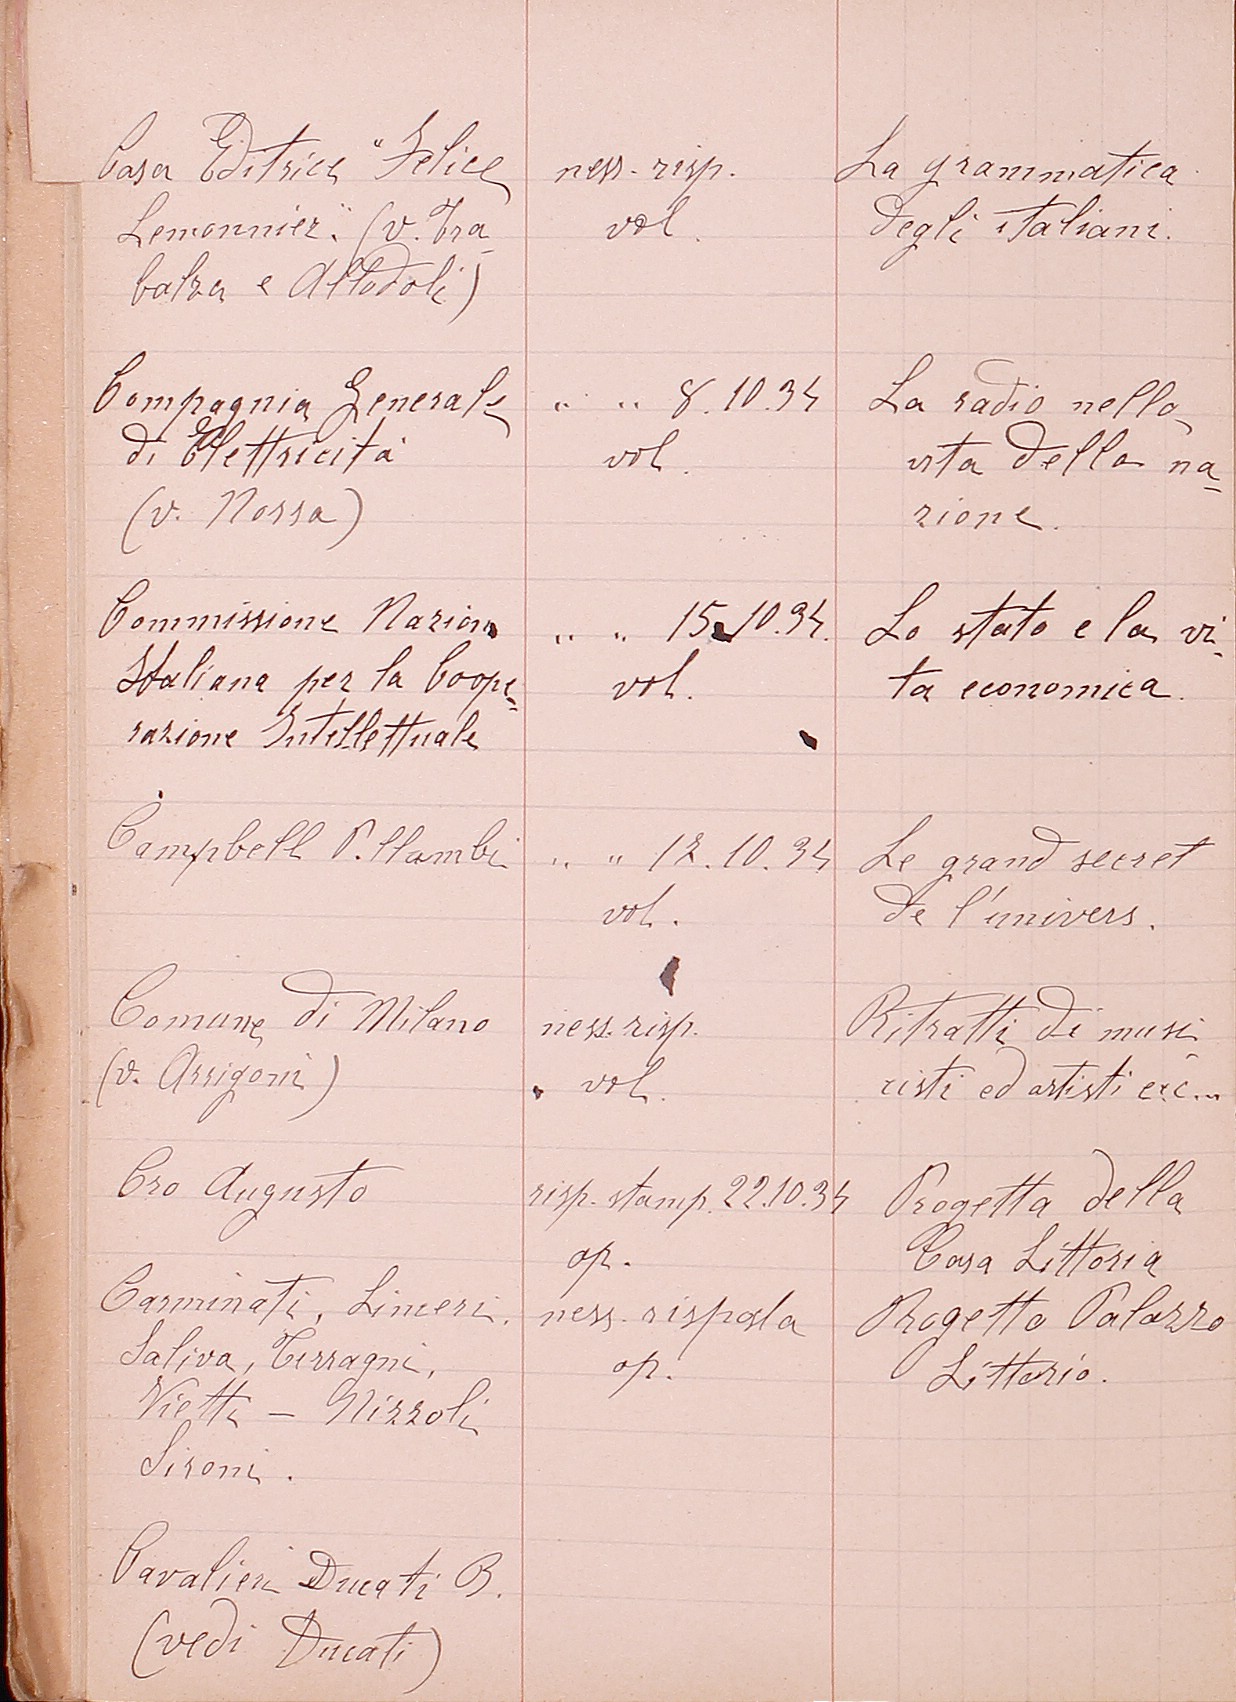 Casa Editrice "Felice ness. risp. La grammatica
Lemonnier". (v. Tra- vol. degli italiani.
balza e Allodoli)
Compagnia Generale " " 8.10.34 La radio nella
di Elettricità vol. vita della na-
(v. Nossa) zione.
Commissione Nazion " " 15.10.34. Lo stato e la vi-
Italiana per la Coope- vol. ta economica.
razione Intellettuale
Campbell P. Llambi " " 12.10.34 Le grand secret
vol. de l'univers.
Comune di Milano ness. risp. Ritratti di musi-
(v. Arrigoni) vol. cisti ed artisti ecc...
Cro Augusto risp. stamp. 22.10.34 Progetta della
op. Casa Littoria
Carminati, Lingeri. ness. risposta Progetto Palazzo
Saliva, Terragni, op. Littorio.
Vietti — Nizzoli
Sironi.
Cavalieri Ducati B.
(vedi Ducati)